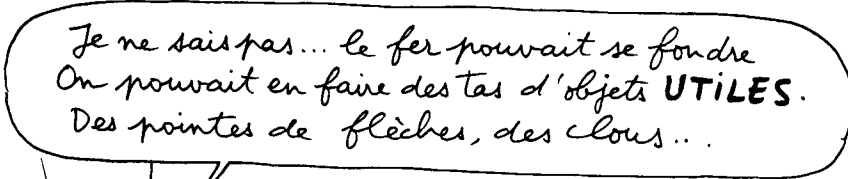 Je ne sais pas... le fer pouvait se fondre
On pouvait en faire des tas d'objets UTiLES.
Des pointes de flèches, des clous...